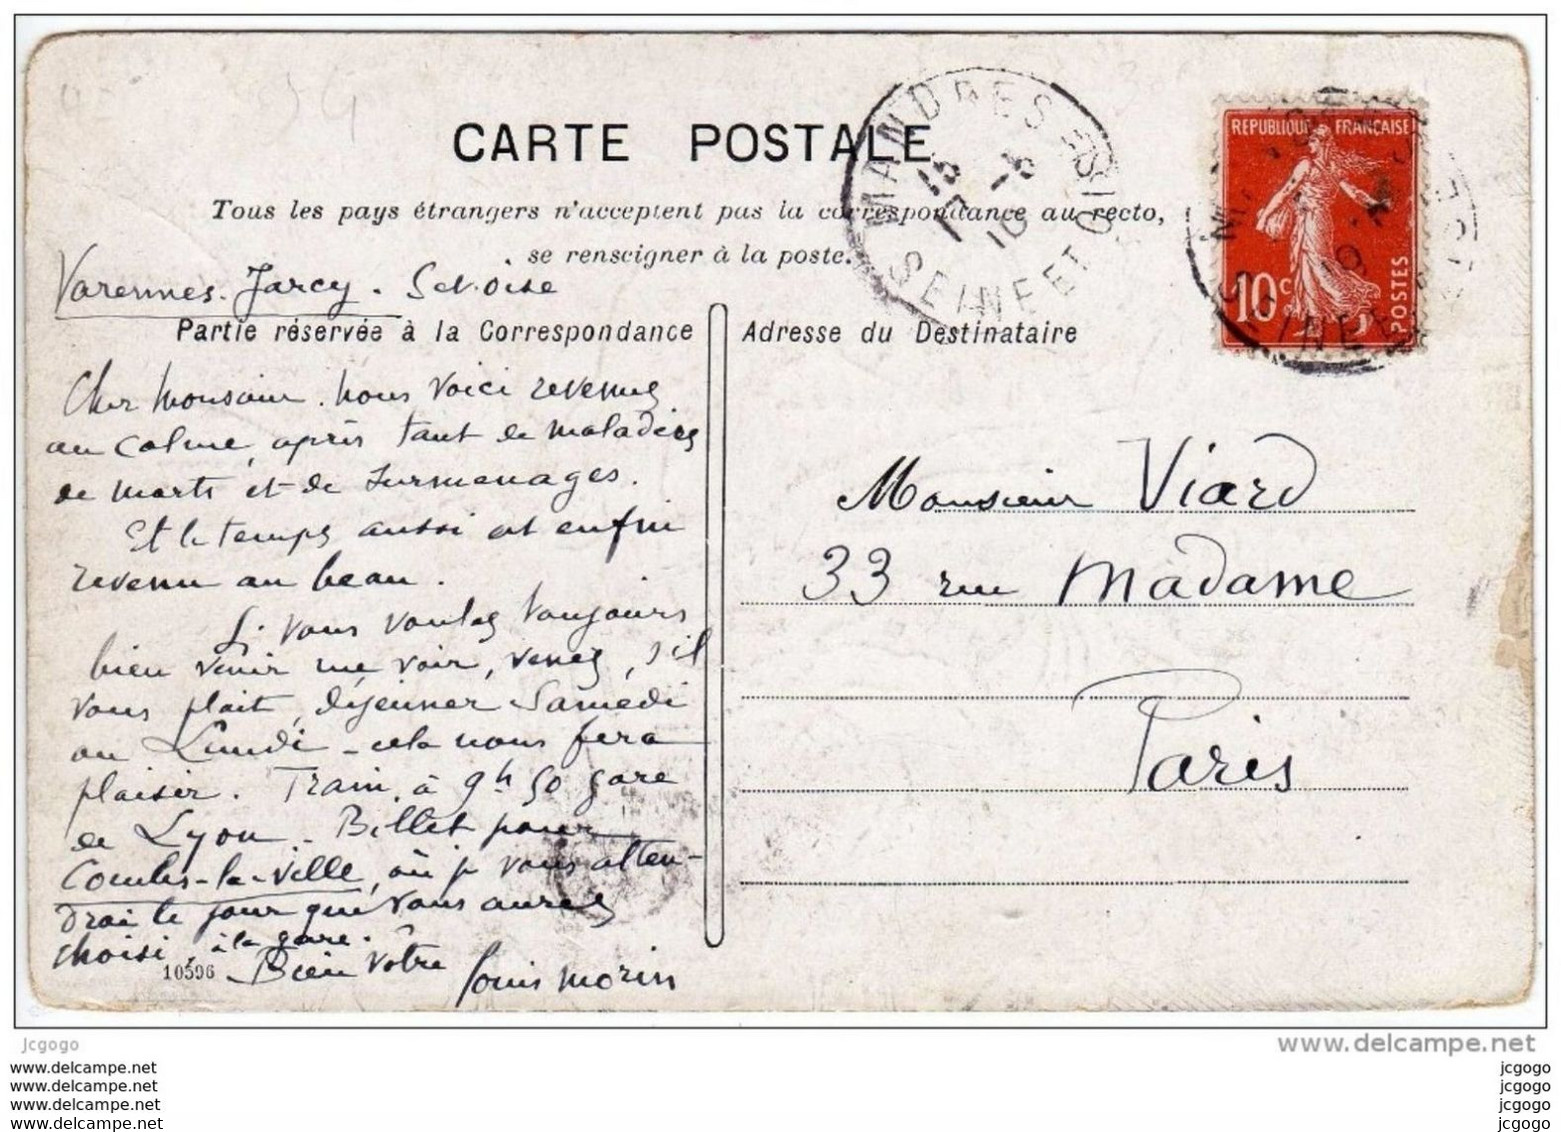 CARTE POSTALE
Tous les pays étrangers n'acceptent pas la correspondance au recto,
se renseigner à la poste.
MANDRES
SEINE ET OISE
15
17 -5
10
REPUBLIQUE FRANÇAISE
10c
POSTES
SEINE ET
Varennes. Jarcy. S et. oise
Partie réservée à la Correspondance
Cher Monsieur. Nous voici revenus
au calme, après tant de maladies
de morts et de surmenages.
Et le temps aussi est enfin
revenu au beau.
Si vous voulez toujours
bien venir me voir, venez, s'il
vous plait, déjeuner Samedi
ou Lundi - cela nous fera
plaisir. Train à 9h 50 gare
de Lyon. Billet pour
Combs-la-Ville, où je vous atten-
drai le jour que vous aurez
choisi, à la gare.
Bien vôtre
Louis Morin
10596
Adresse du Destinataire
Monsieur Viard
33 rue Madame
Paris
jcgogo
www.delcampe.net
www.delcampe.net
www.delcampe.net
www.delcampe.net
www.delcampe.net
jcgogo
jcgogo
jcgogo
jcgogo